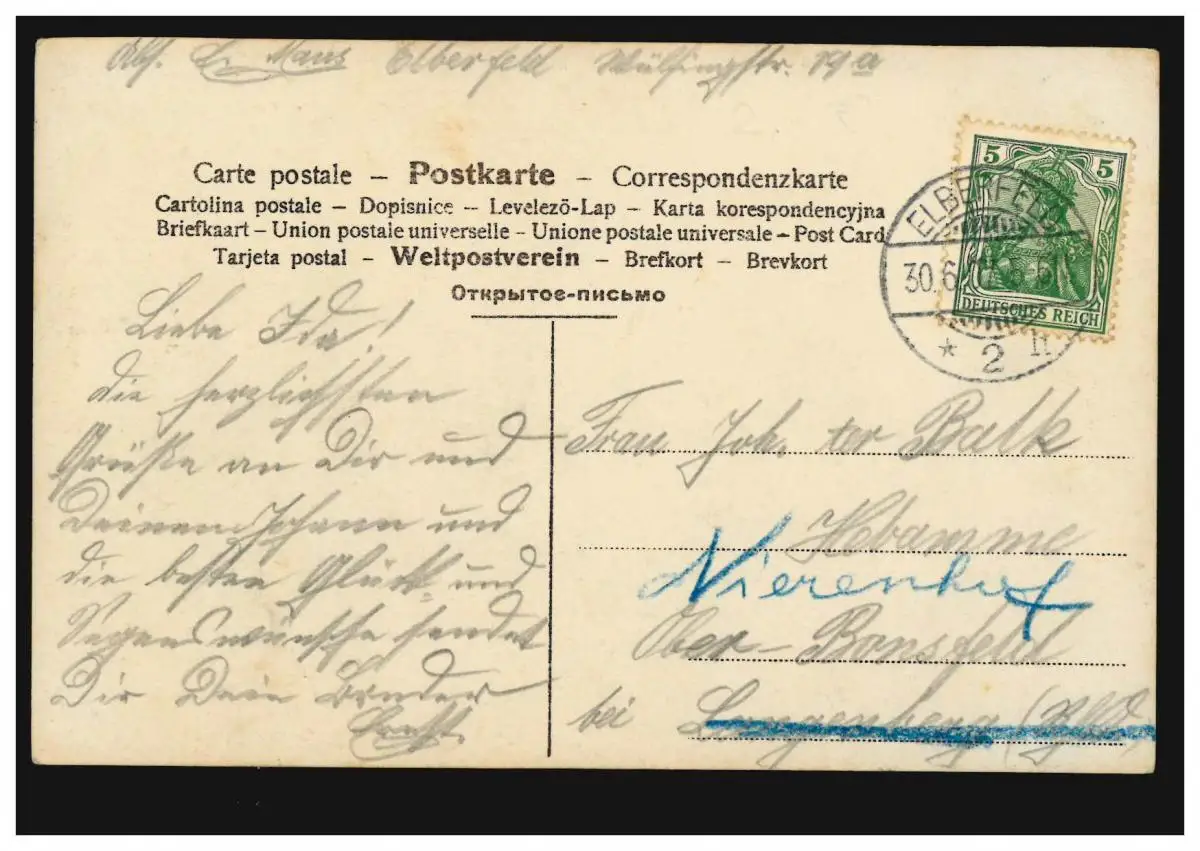 Abs. E. Maus Elberfeld Wülfingstr. 19a
Carte postale – Postkarte – Correspondenzkarte
Cartolina postale – Dopisnice – Levelező-Lap – Karta korespondencyjna
Briefkaart – Union postale universelle – Unione postale universale – Post Card
Tarjeta postal – Weltpostverein – Brefkort – Brevkort
Открытое-письмо
5 5
DEUTSCHES REICH
ELBERFELD
30.6.
* 2 n
Liebe Ida!
die herzlichsten
Grüße an Dir und
Deinen Johann und
die besten Glück- und
Segenswünsche sendet
Dir Dein Bruder
Ernst.
Frau Joh. ter Balk
Hebamme
Nierenhof
Ober-Bonsfeld
bei Langenberg (Rhld)